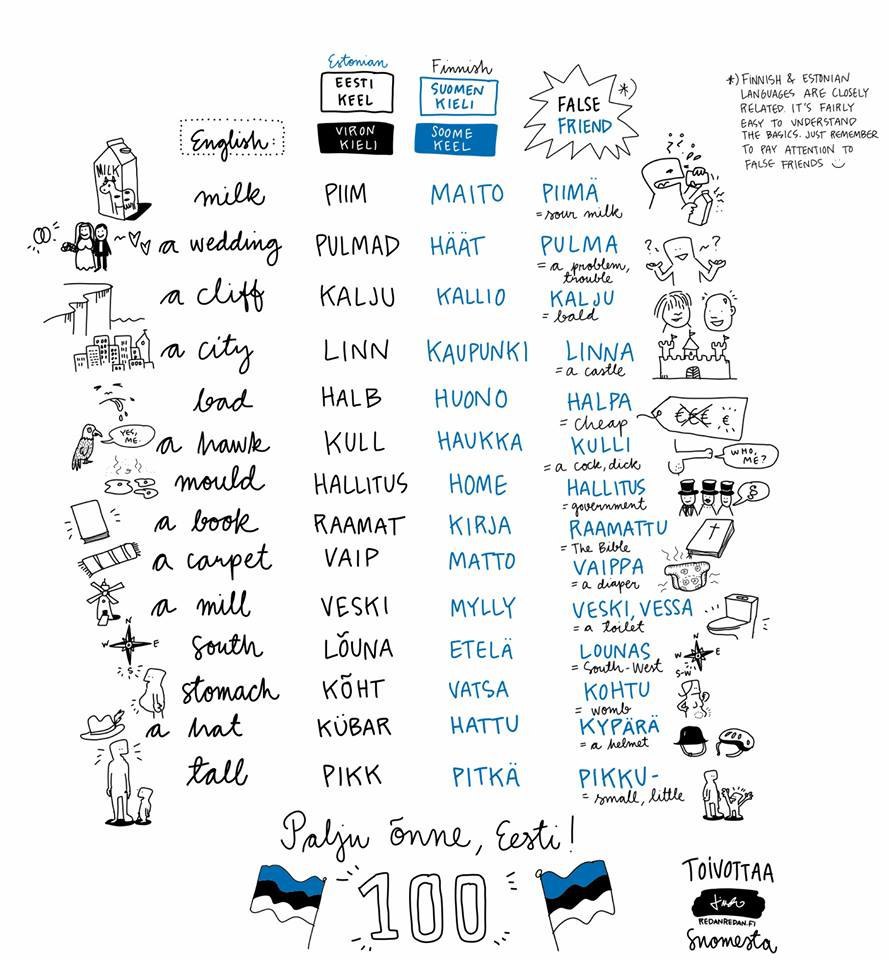 Estonian
Finnish
EESTI
KEEL
SUOMEN
KIELI
FALSE
FRIEND
*)
English:
VIRON
KIELI
SOOME
KEEL
*) FINNISH & ESTONIAN
LANGUAGES ARE CLOSELY
RELATED. IT'S FAIRLY
EASY TO UNDERSTAND
THE BASICS. JUST REMEMBER
TO PAY ATTENTION TO
FALSE FRIENDS
MILK
milk PIIM MAITO PIIMÄ
= sour milk
a wedding PULMAD HÄÄT PULMA
= a problem,
trouble
? ?
a cliff KALJU KALLIO KALJU
= bald
a city LINN KAUPUNKI LINNA
= a castle
bad HALB HUONO HALPA
= cheap
€€€ €
YES,
ME.
a hawk KULL HAUKKA KULLI
= a cock, dick
WHO,
ME?
mould HALLITUS HOME HALLITUS
= government
§
a book RAAMAT KIRJA RAAMATTU
= The Bible
a carpet VAIP MATTO VAIPPA
= a diaper
a mill VESKI MYLLY VESKI, VESSA
= a toilet
N
W E
S
South LÕUNA ETELÄ LOUNAS
= South-West
N
W E
S-W
stomach KÕHT VATSA KOHTU
= womb
a hat KÜBAR HATTU KYPÄRÄ
= a helmet
tall PIKK PITKÄ PIKKU-
= small, little
Palju õnne, Eesti!
100
TOIVOTTAA
REDANREDAN.FI
Suomesta